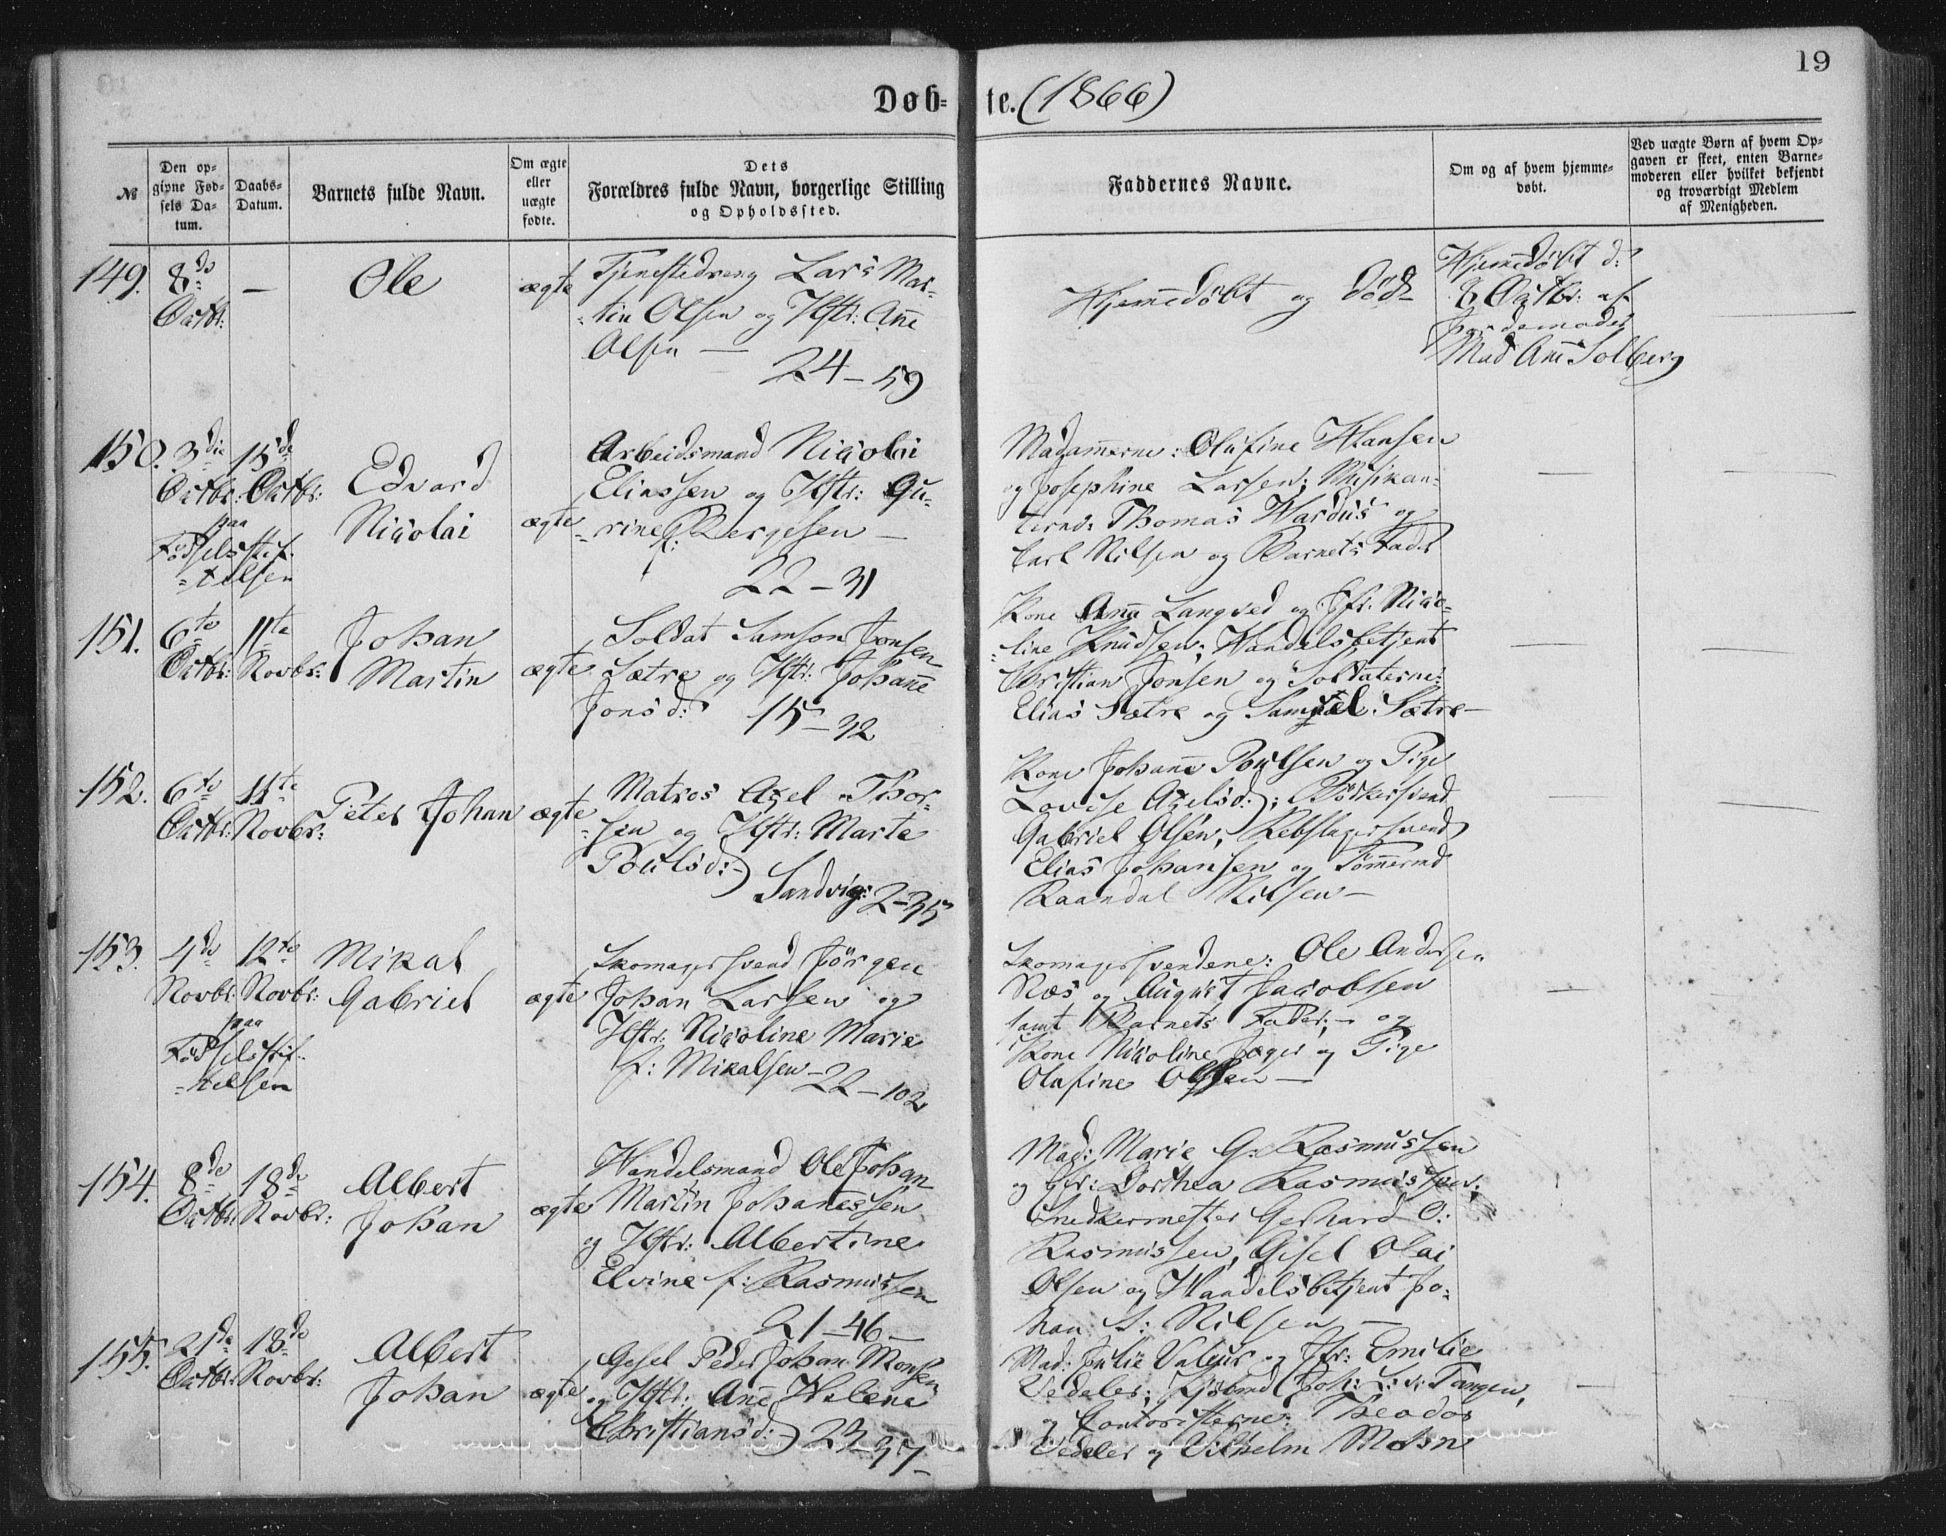 19
Døb- te. (1866)
№
Den opgivne Fødsels Datum.
Daabs-Datum.
Barnets fulde Navn.
Om ægte eller uægte fødte.
Dets Forældres fulde Navn, borgerlige Stilling og Opholdssted.
Faddernes Navne.
Om og af hvem hjemmedøbt.
Ved uægte Børn af hvem Opgaven er skeet, enten Barnemoderen eller hvilket bekjendt og troværdigt Medlem af Menigheden.
149. 8de Octbr: — Ole ægte
Tjenestedreng Lars Mar-
-tin Olsen og Hstr: Ane
Olsen —
24 - 59
Hjemedøbt og død -
Hjemedøbt d:
8 Octbr: af
Jordemoder
Mad Ane Solberg
150. 3die Octbr: 15de Octbr:
paa
Fødselsstif-
-telsen
Edvard
Nicolai
ægte
Arbeidsmand Nicolai
Eliassen og Hstr: Gu-
-rine f: Bergesen —
22 - 31
Madamerne: Olufine Hansen
og Josephine Larsen; Musikan-
terne Thomas Hardus og
Carl Nilsen og Barnets Fader
151. 6te Octbr: 11te Novbr:
Johan
Martin
ægte
Soldat Samson Jonsen
Sætre og Hstr: Johane
Jonsd: 15 - 32
Kone Ana Langved og Jfr: Nico-
-line Knudsen; Handelsbetjent
Christian Jonsen og Soldaterne:
Elias Sætre og Samuel Sætre —
152. 6te Octbr: 11te Novbr:
Peter Johan ægte
Matros Axel Thor-
-sen og Hstr: Marte
Poulsd: -
Sandvig: 2 - 35
Kone Johane Poulsen og Pige
Lovise Axelsd:; Bødkersvend
Gabriel Olsen; Rebslagersvend
Elias Johansen og Tømermd
Raandal Nilsen —
153. 4de Novbr: 12te Novbr:
paa
Fødselsstif-
-telsen
Mikal
Gabriel
ægte
Skomagersvend Jörgen
Johan Larsen og
Hstr: Nicoline Marie
f: Mikalsen —
22 - 102
Skomagersvendene: Ole Andersen
Næs og August Jacobsen
samt Barnets Fader; - og
Kone Nicoline Jæger og Pige
Olafine Olsen —
154. 8de Octbr: 18de Novbr:
Albert
Johan
ægte
Handelsmand Ole Johan
Martin Johanessen
og Hstr: Albertine
Elvine f: Rasmussen
21 - 46 —
Mad: Marie G: Rasmussen
og Jfr: Dorthea Rasmussen;
Snedkermester Gerhard O:
Rasmussen, Gisel Olai
Olsen og Handelsbetjent Jo-
han S: Nilsen —
155. 21de Octbr: 18de Novbr:
Albert
Johan
ægte
Gesel Peder Johan Monsen
og Hstr: Ane Helene
Christiansd: 23 - 37 -
Mad: Julie Valeur og Jfr: Emilie
Vedeler; Kjøbmd Joh: L: v: Tangen,
og Contoristerne: Theodor
Vedeler og Vilhelm Mohn